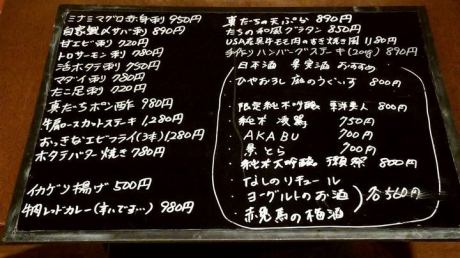 ミナミマグロ赤身刺 950円
自家製〆サバ刺 890円
甘エビ刺 720円
トロサーモン刺 780円
活ホタテ刺 750円
マダイ刺 780円
たこ足刺 720円
真だちポン酢 980円
牛肩ロースカットステーキ 1,280円
おっきなエビフライ(3本) 1,280円
ホタテバター焼き 780円
イカゲソ揚げ 500円
牛肉レッドカレー(すいでま…) 980円
真だちの天ぷら 890円
たちの和風グラタン 850円
USA産黒牛もも肉のすき焼き風 1180円
手作りハンバーグステーキ(200g) 890円
日本酒 果実酒 おすすめ
ひやおろし 庭のうぐいす 800円
・限定純米吟醸 東洋美人 800円
・純米 凌駕 750円
・AKABU 700円
・黒とら 700円
・純米大吟醸 獺祭 800円
・なしのリキュール
・ヨーグルトのお酒
・赤兎馬の梅酒
各560円